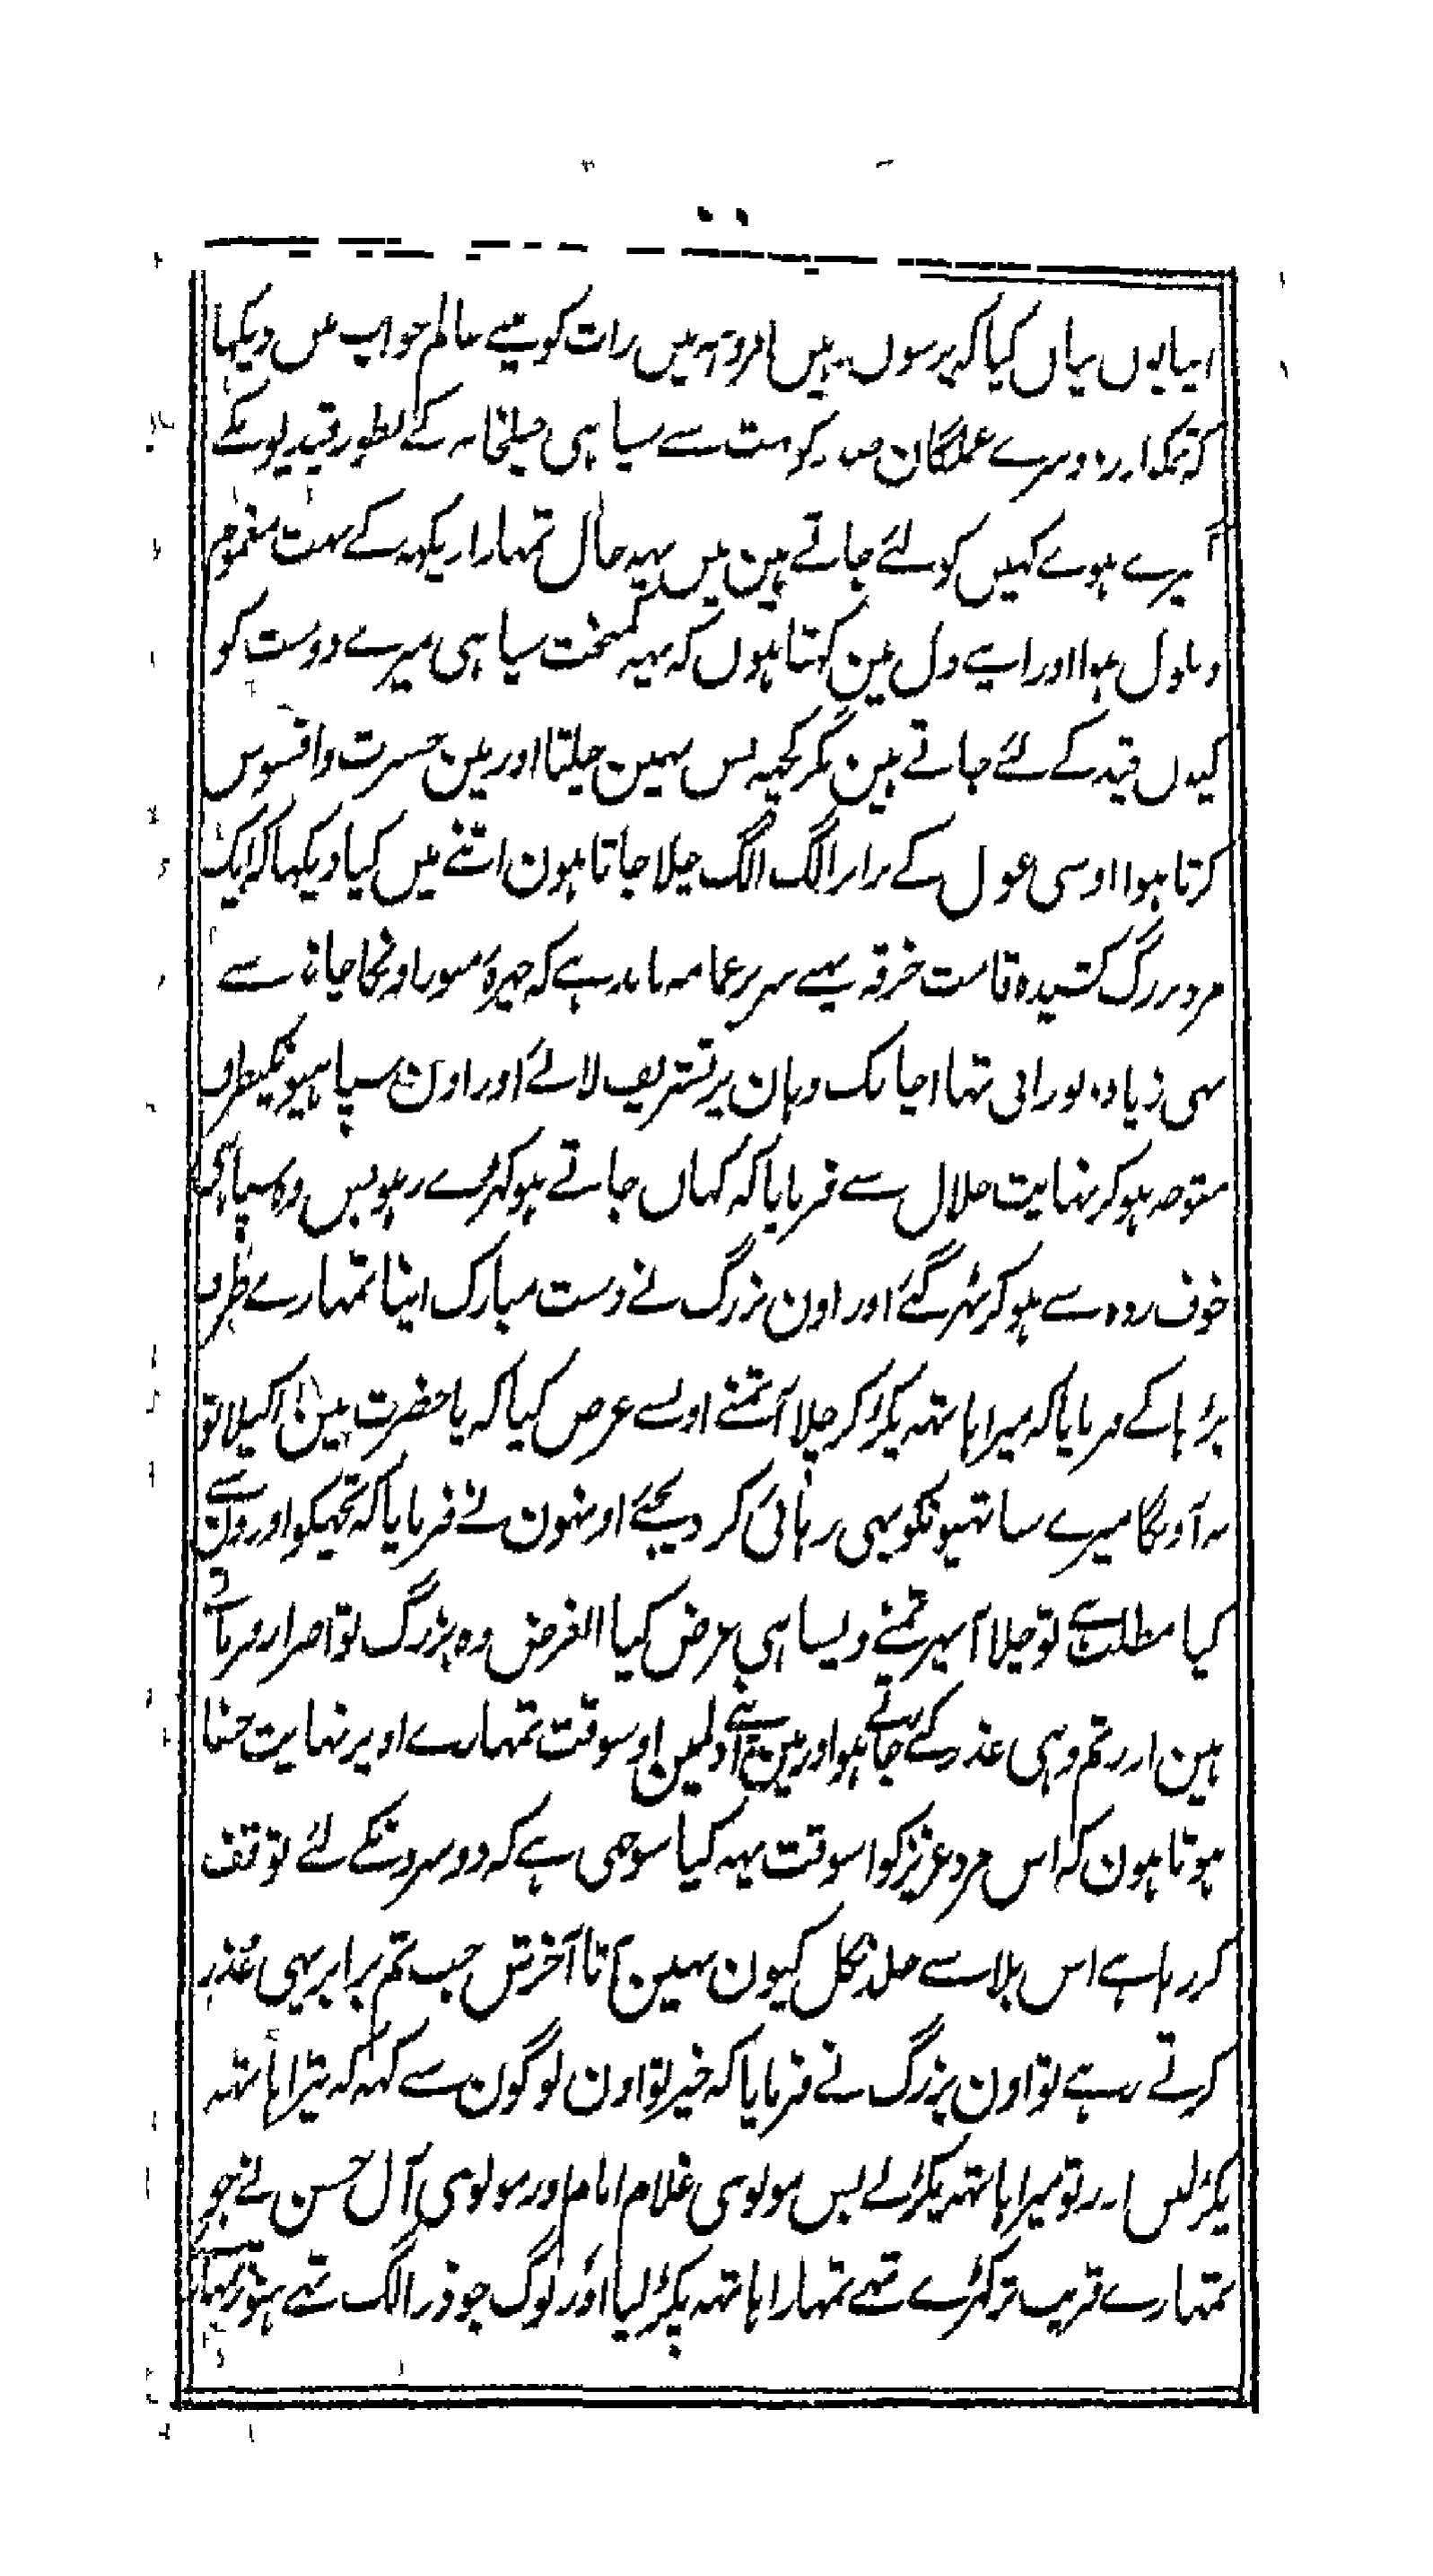 اپنا یوں بیاں کیا کہ پرسوں یہیں امروہہ میں رات کو مینے عالم خواب میں دیکہا
کہ تمکو اور دوسرے عملگان صدر کو بہت سے سپاہی جیلخانہ کے بطور قیدیونکے
گہیرے ہوے کہیں کو لئے جاتے ہین میں یہہ حال تمہارا دیکہہ کے بہت مغموم
و ملول ہوا اور اپنے دل مین کہتا ہوں کہ یہہ کمبخت سپاہی میرے دوست کو
کیوں قید کئے لئے جاتے ہین مگر کچہہ بس نہین چلتا اور مین حسرت و افسوس
کرتا ہوا اوسی غول کے برابر الگ الگ چلا جاتا ہون اتنے میں کیا دیکہا کہ ایک
مرد بزرگ کشیدہ قامت خرقہ پہنے سر پر عمامہ باندہے کہ چہرۂ منور اونکا چاند سے
بہی زیادہ نورانی تہا اچانک وہان پر تشریف لائے اور اون سپاہیونکیطرف
متوجہ ہوکر نہایت جلال سے فرمایا کہ کہاں جاتے ہو کہڑے رہو پس وہ سپاہی
خوف زدہ سے ہوکر ٹہر گئے اور اون بزرگ نے دست مبارک اپنا تمہارے طرف
بڑہا کے فرمایا کہ میرا ہاتہہ پکڑ کر چلا آ تمنے اونسے عرض کیا کہ یا حضرت مین اکیلا تو
نہ آونگا میرے ساتہیونکو بہی رہائی کر دیجئے اونہون نے فرمایا کہ تجہکو اورون سے
کیا مطلب ہے تو چلا آ پہر تمنے ویسا ہی عرض کیا الغرض وہ بزرگ تو اصرار فرماتے
ہین اور تم وہی عذر کئے جاتے ہو اور مین اپنے دلمین اوسوقت تمہارے اوپر نہایت خفا
ہوتا ہون کہ اس مرد عزیز کو اسوقت یہہ کیا سوجہی ہے کہ دوسرونکے لئے توقف
کر رہا ہے اس بلا سے جلد نکل کیون نہین آتا آخرش جب تم برابر یہی عذر
کرتے رہے تو اون بزرگ نے فرمایا کہ خیر تو اون لوگون سے کہہ کہ تیرا ہاتہہ
پکڑ لیں اور تو میرا ہاتہہ پکڑ لے پس مولوی غلام امام اور مولوی آل حسن نے جو
تمہارے قریب تر کہڑے تہے تمہارا ہاتہہ پکڑ لیا اور لوگ جو ذرا الگ تہے